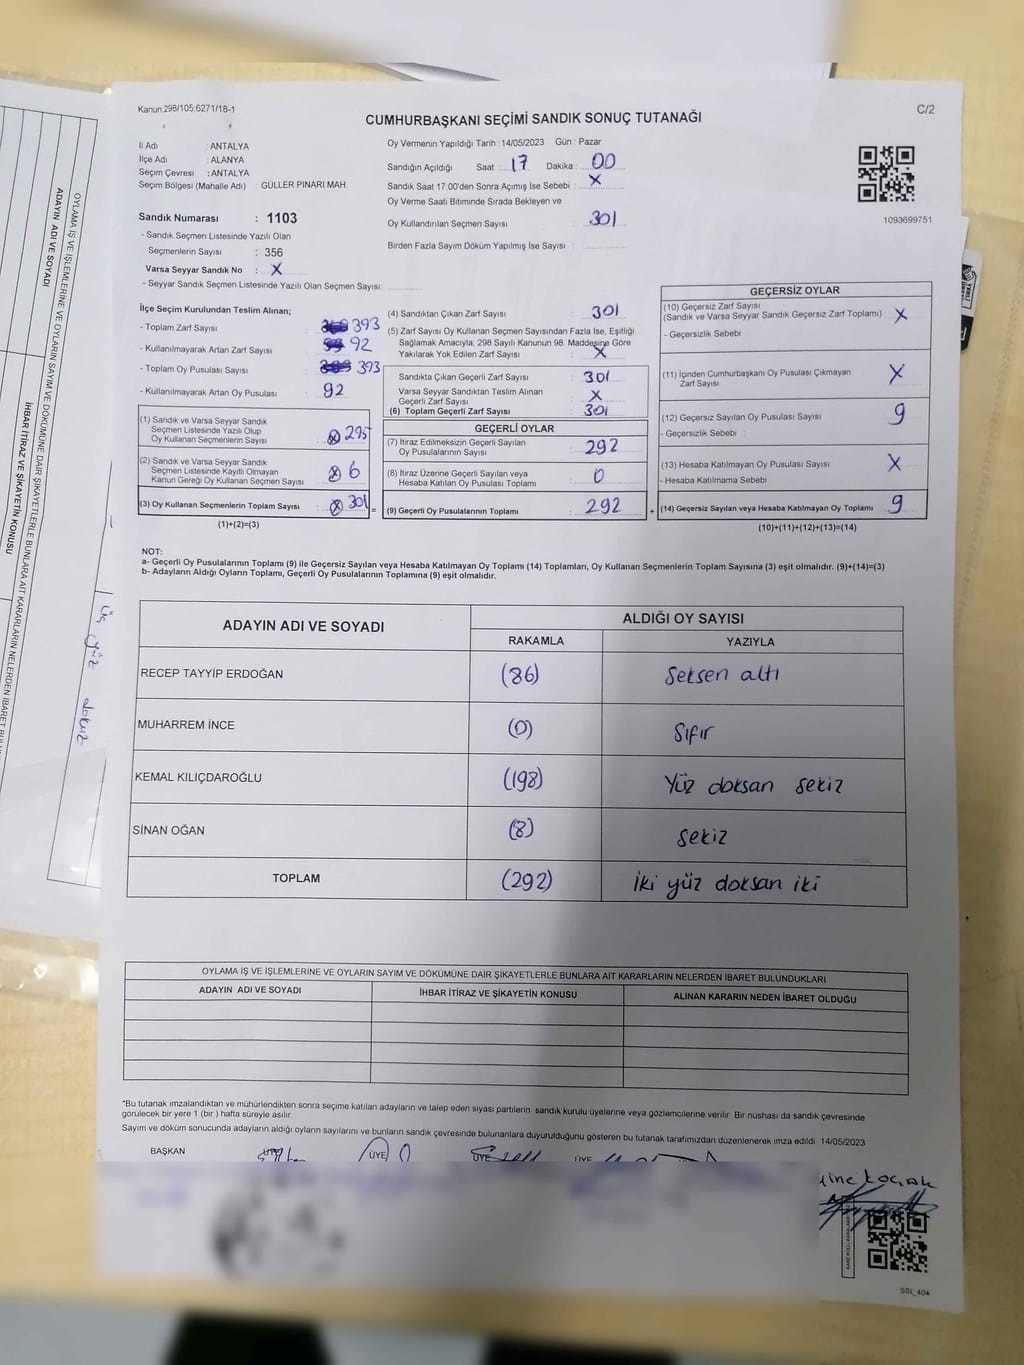 Kanun 298/105;6271/18-1
C/2
CUMHURBAŞKANI SEÇİMİ SANDIK SONUÇ TUTANAĞI
İl Adı : ANTALYA
İlçe Adı : ALANYA
Seçim Çevresi : ANTALYA
Seçim Bölgesi (Mahalle Adı) : GÜLLER PINARI MAH.
Sandık Numarası : 1103
- Sandık Seçmen Listesinde Yazılı Olan
Seçmenlerin Sayısı : 356
Varsa Seyyar Sandık No : X
- Seyyar Sandık Seçmen Listesinde Yazılı Olan Seçmen Sayısı:
Oy Vermenin Yapıldığı Tarih : 14/05/2023 Gün : Pazar
Sandığın Açıldığı Saat : 17 Dakika : 00
Sandık Saat 17.00'den Sonra Açımış İse Sebebi : X
Oy Verme Saati Bitiminde Sırada Bekleyen ve
Oy Kullandırılan Seçmen Sayısı : 301
Birden Fazla Sayım Döküm Yapılmış İse Sayısı :
1093699751
İlçe Seçim Kurulundan Teslim Alınan;
- Toplam Zarf Sayısı : 393
- Kullanılmayarak Artan Zarf Sayısı : 92
- Toplam Oy Pusulası Sayısı : 393
- Kullanılmayarak Artan Oy Pusulası : 92
(1) Sandık ve Varsa Seyyar Sandık
Seçmen Listesinde Yazılı Olup
Oy Kullanan Seçmenlerin Sayısı : 295
(2) Sandık ve Varsa Seyyar Sandık
Seçmen Listesinde Kayıtlı Olmayan
Kanun Gereği Oy Kullanan Seçmen Sayısı : 6
(3) Oy Kullanan Seçmenlerin Toplam Sayısı : 301 =
(1)+(2)=(3)
(4) Sandıktan Çıkan Zarf Sayısı : 301
(5) Zarf Sayısı Oy Kullanan Seçmen Sayısından Fazla İse, Eşitliği
Sağlamak Amacıyla, 298 Sayılı Kanunun 98. Maddesine Göre
Yakılarak Yok Edilen Zarf Sayısı : X
Sandıkta Çıkan Geçerli Zarf Sayısı : 301
Varsa Seyyar Sandıktan Teslim Alınan
Geçerli Zarf Sayısı : X
(6) Toplam Geçerli Zarf Sayısı : 301
GEÇERLİ OYLAR
(7) İtiraz Edilmeksizin Geçerli Sayılan
Oy Pusulalarının Sayısı : 292
(8) İtiraz Üzerine Geçerli Sayılan veya
Hesaba Katılan Oy Pusulası Toplamı : 0
(9) Geçerli Oy Pusulalarının Toplamı : 292 +
GEÇERSİZ OYLAR
(10) Geçersiz Zarf Sayısı
(Sandık ve Varsa Seyyar Sandık Geçersiz Zarf Toplamı) : X
- Geçersizlik Sebebi :
(11) İçinden Cumhurbaşkanı Oy Pusulası Çıkmayan
Zarf Sayısı X
(12) Geçersiz Sayılan Oy Pusulası Sayısı : 9
- Geçersizlik Sebebi :
(13) Hesaba Katılmayan Oy Pusulası Sayısı : X
- Hesaba Katılmama Sebebi
(14) Geçersiz Sayılan veya Hesaba Katılmayan Oy Toplamı : 9
(10)+(11)+(12)+(13)=(14)
NOT:
a- Geçerli Oy Pusulalarının Toplamı (9) ile Geçersiz Sayılan veya Hesaba Katılmayan Oy Toplamı (14) Toplamları, Oy Kullanan Seçmenlerin Toplam Sayısına (3) eşit olmalıdır. (9)+(14)=(3)
b- Adayların Aldığı Oyların Toplamı, Geçerli Oy Pusulalarının Toplamına (9) eşit olmalıdır.
ADAYIN ADI VE SOYADI ALDIĞI OY SAYISI
RAKAMLA YAZIYLA
RECEP TAYYİP ERDOĞAN (86) Seksen altı
MUHARREM İNCE (0) Sıfır
KEMAL KILIÇDAROĞLU (198) Yüz doksan sekiz
SİNAN OĞAN (8) Sekiz
TOPLAM (292) İki yüz doksan iki
OYLAMA İŞ VE İŞLEMLERİNE VE OYLARIN SAYIM VE DÖKÜMÜNE DAİR ŞİKAYETLERLE BUNLARA AİT KARARLARIN NELERDEN İBARET BULUNDUKLARI
ADAYIN ADI VE SOYADI İHBAR İTİRAZ VE ŞİKAYETİN KONUSU ALINAN KARARIN NEDEN İBARET OLDUĞU
*Bu tutanak imzalandıktan ve mühürlendikten sonra seçime katılan adayların ve talep eden siyasi partilerin sandık kurulu üyelerine veya gözlemcilerine verilir. Bir nüshası da sandık çevresinde
görülecek bir yere 1 (bir ) hafta süreyle asılır.
Sayım ve döküm sonucunda adayların aldığı oyların sayılarını ve bunların sandık çevresinde bulunanlara duyurulduğunu gösteren bu tutanak tarafımızdan düzenlenerek imza edildi. 14/05/2023
BAŞKAN ÜYE ÜYE ÜYE
SSI_404
OYLAMA İŞ VE İŞLEMLERİNE VE OYLARIN SAYIM VE DÖKÜMÜNE DAİR ŞİKAYETLERLE BUNLARA AİT KARARLARIN NELERDEN İBARET
ADAYIN ADI VE SOYADI
İHBAR İTİRAZ VE ŞİKAYETİN KONUSU
Üç yüz dokuz